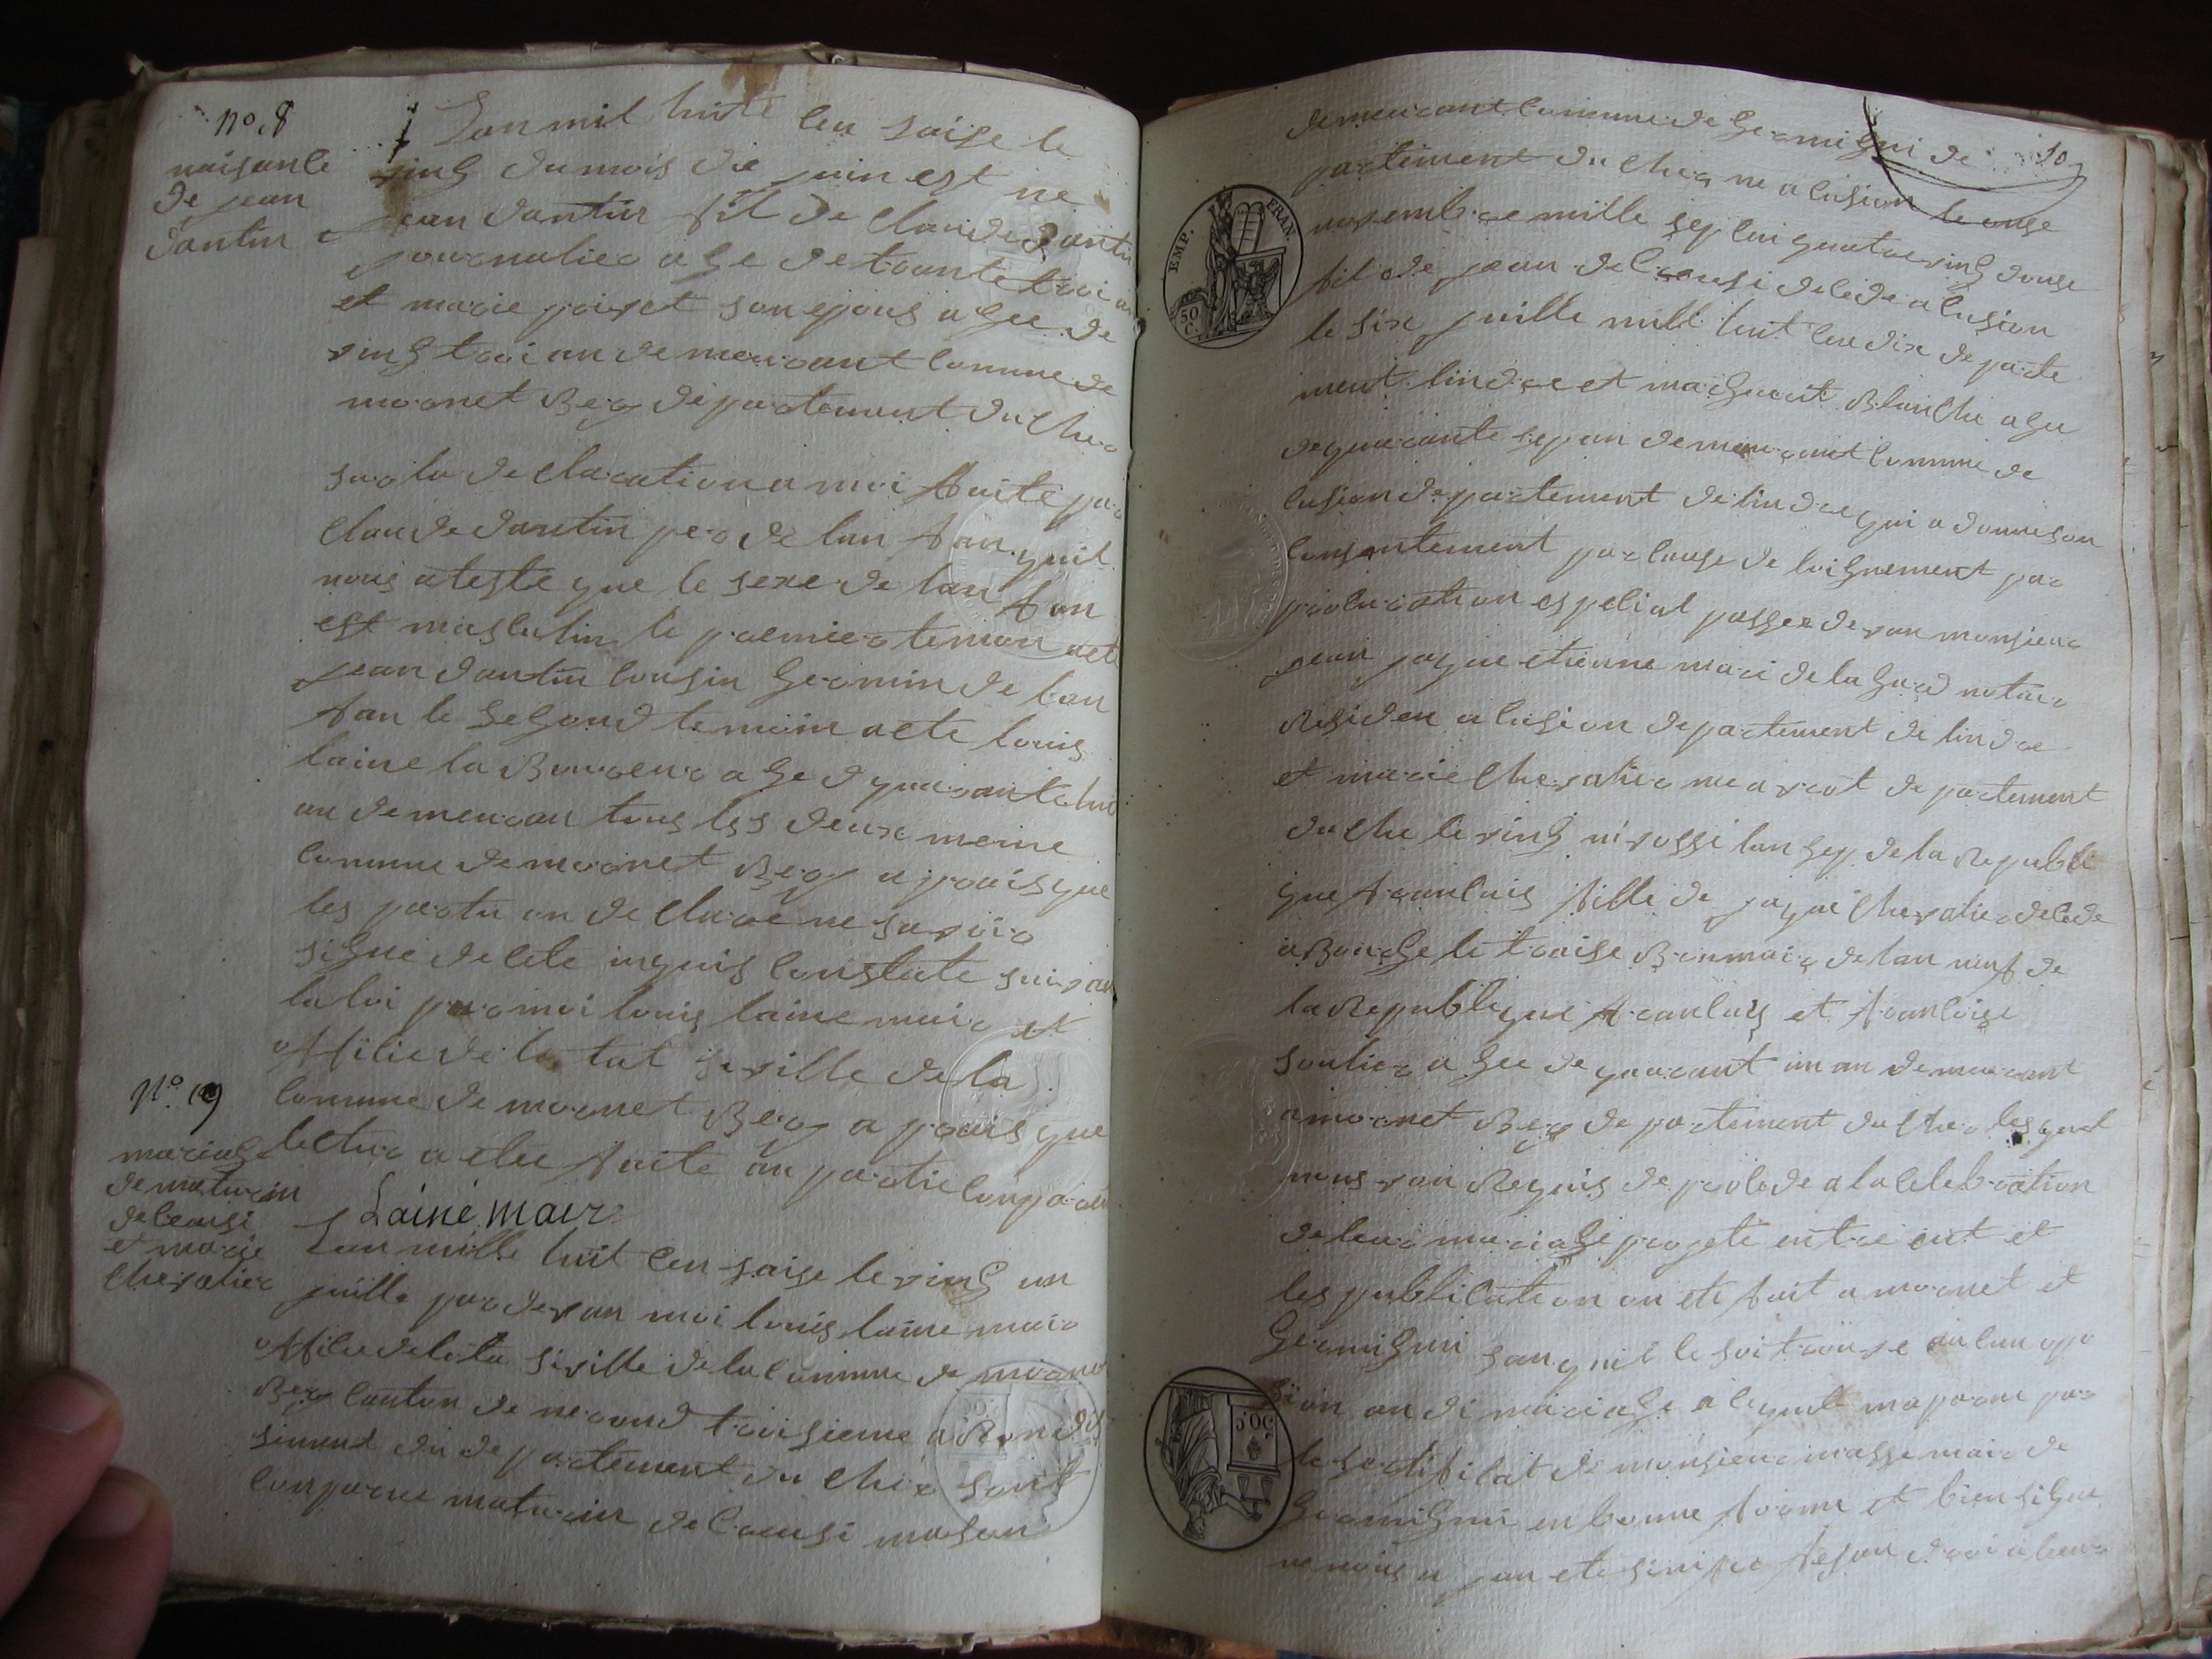 no 8
naisance
de jean
dantin
Lan mil huite cen saise le
vinG du mois de juin est ne
jean dantin fil de claude dantin
journalier aGe de trante troi an
et marie poivet son epous aGee de
vinG troi an demeurant comune de
mornet Bery departement du cher
sur la declaration a moi faite par
claude dantin per de lan fan quil
nous ateste que le sexe de lan fan
est masculin le premier temon aet
jean dantin cousin Germin de lan
fan le seGond temoin aete louis
laine laboureur aGe de quarante huit
an demeuran tous les deux meme
comune de mornet Bery apraisque
les partie on declare ne savoir
siGne de cete inquis constate suivan
la loi par moi louis laine mair et
officie de letat seville de la
comune de mornet Bery aprais que
lectur a etee faite au partie conparan
Lainé mair
No. 9
mariaGe
de maturin
delcausi
et marie
chevalier
Lan mille huit cen saise le vinG un
juille par devan moi louis laine mair
officie de leta seville de la comune de mornet
Bery canton de nerond troisieme aRondis
siment du departement du cher sont
conparue maturin delcausi mason
10
demeurant comune de Germigni de
partement du cher ne a lusion le onse
novembre mille sep cen quatrevinG douse
fil de jean delcausi decede a lusion
le six juille mill huit cen dix departe
ment lindre et marGuerit Blanche aGee
de quarante sep an demeurant comune de
lusion departement de lindre qui a donne son
consantement par cause de loiGnement par
procuration espesial passee devan monsieur
jean jaque etienne mari de la Gard notair
Residen a lusion departement de lindre
et marie chevalier ne a vrot departement
du che le vinG nivossi lan sep de la Republi
que francais fille de jaque chevalier decede
a Bourge le traise Brumair de lan neuf de
la Republique francais et francoise
soulier aGee de quarant un an demeurant
a mornet Bery departement du cher lesquel
nous van Requis de procede a la celebration
de leur mariaGe projete entre eut et
les publication on ete fait a mornet et
GermiGni san quil le soi trouve aucun opo
sion au di mariaGe a lequele maparue par
le sertificat de monsieur masse mair de
GermiGni en bonne forme et bien siGne
ne nous a jan ete sinifie fesan droi a leur